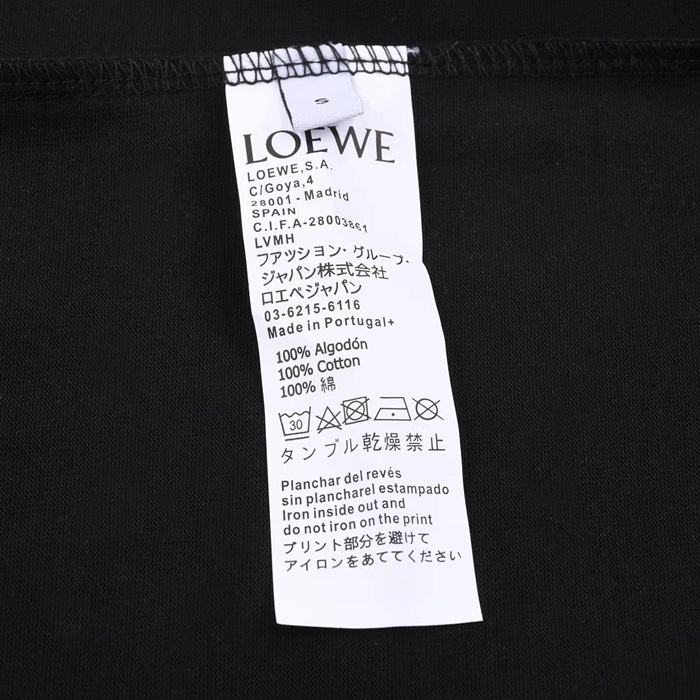 S
LOEWE
LOEWE,S.A.
C/Goya,4
28001 - Madrid
SPAIN
C.I.F.A-28003861
LVMH
ファツション・グループ・
ジャパン株式会社
ロエベジャパン
03-6215-6116
Made in Portugal+
100% Algodón
100% Cotton
100% 綿
30
タンブル乾燥禁止
Planchar del revés
sin plancharel estampado
Iron inside out and
do not iron on the print
プリント部分を避けて
アイロンをあててください